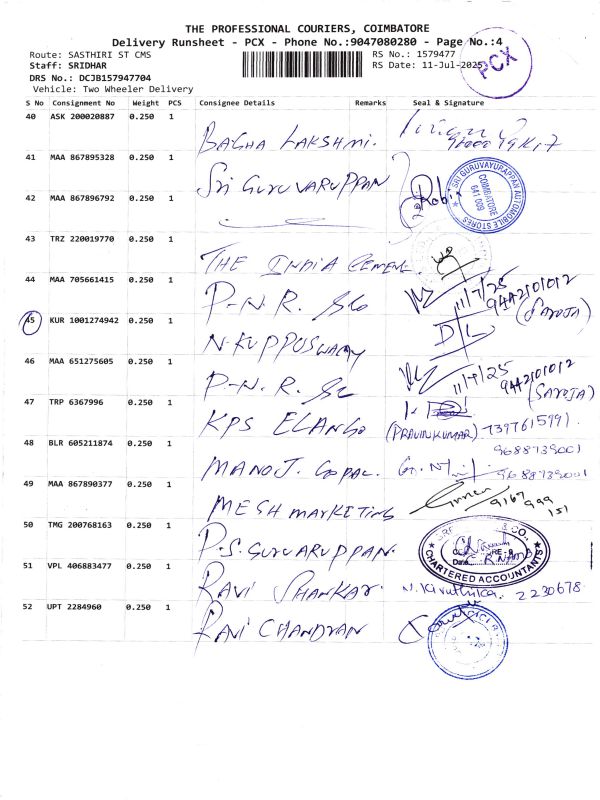 THE PROFESSIONAL COURIERS, COIMBATORE
Delivery Runsheet - PCX - Phone No.:9047080280 - Page No.:4
Route: SASTHIRI ST CMS RS No.: 1579477
Staff: SRIDHAR RS Date: 11-Jul-2025
PCX
DRS No.: DCJB157947704
Vehicle: Two Wheeler Delivery
S No Consignment No Weight PCS Consignee Details Remarks Seal & Signature
40 ASK 200020887 0.250 1 BAGHA LAKSHMI.
41 MAA 867895328 0.250 1 SRI GURUVARUPPAN
SRI GURUVAYUPAPPAN AUTOMOBILE STORES COIMBATORE 641 009
42 MAA 867896792 0.250 1
43 TRZ 220019770 0.250 1 THE INDIA CEMENT.
44 MAA 705661415 0.250 1 P-N.R. 11/7/25 9442101012 (SAROJA)
45 KUR 1001274942 0.250 1 N-KUPPUSWAMY D/L
46 MAA 651275605 0.250 1 P-N.R. 11/7/25 9442101012 (SAROJA)
47 TRP 6367996 0.250 1 KPS ELANGO (PRAVINKUMAR) 7397615991
9688739001
48 BLR 605211874 0.250 1 MANOJ. GOPAL. 9688739001
49 MAA 867890377 0.250 1 MESH MARKETING 9167 999 151
50 TMG 200768163 0.250 1 P.S. GURUARUPPAN.
& CO. CHARTERED ACCOUNTANTS
51 VPL 406883477 0.250 1 RAVI SHANKAR N. Kiruthika. 2230678
52 UPT 2284960 0.250 1 RAVI CHANDRAN